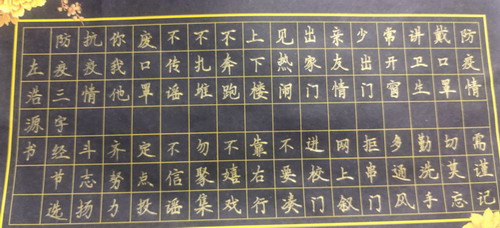 防疫情需谨记
戴口罩切莫忘
讲卫生勤洗手
常开窗多通风
少出门拒串门
亲友情网上叙
出家门进校门
见热闹不要凑
上下楼靠右行
不奔跑不嬉戏
不扎堆勿聚集
不传谣不信谣
废口罩定点投
你我他齐努力
抗疫情斗志扬
防疫三字经节选
左浩源书